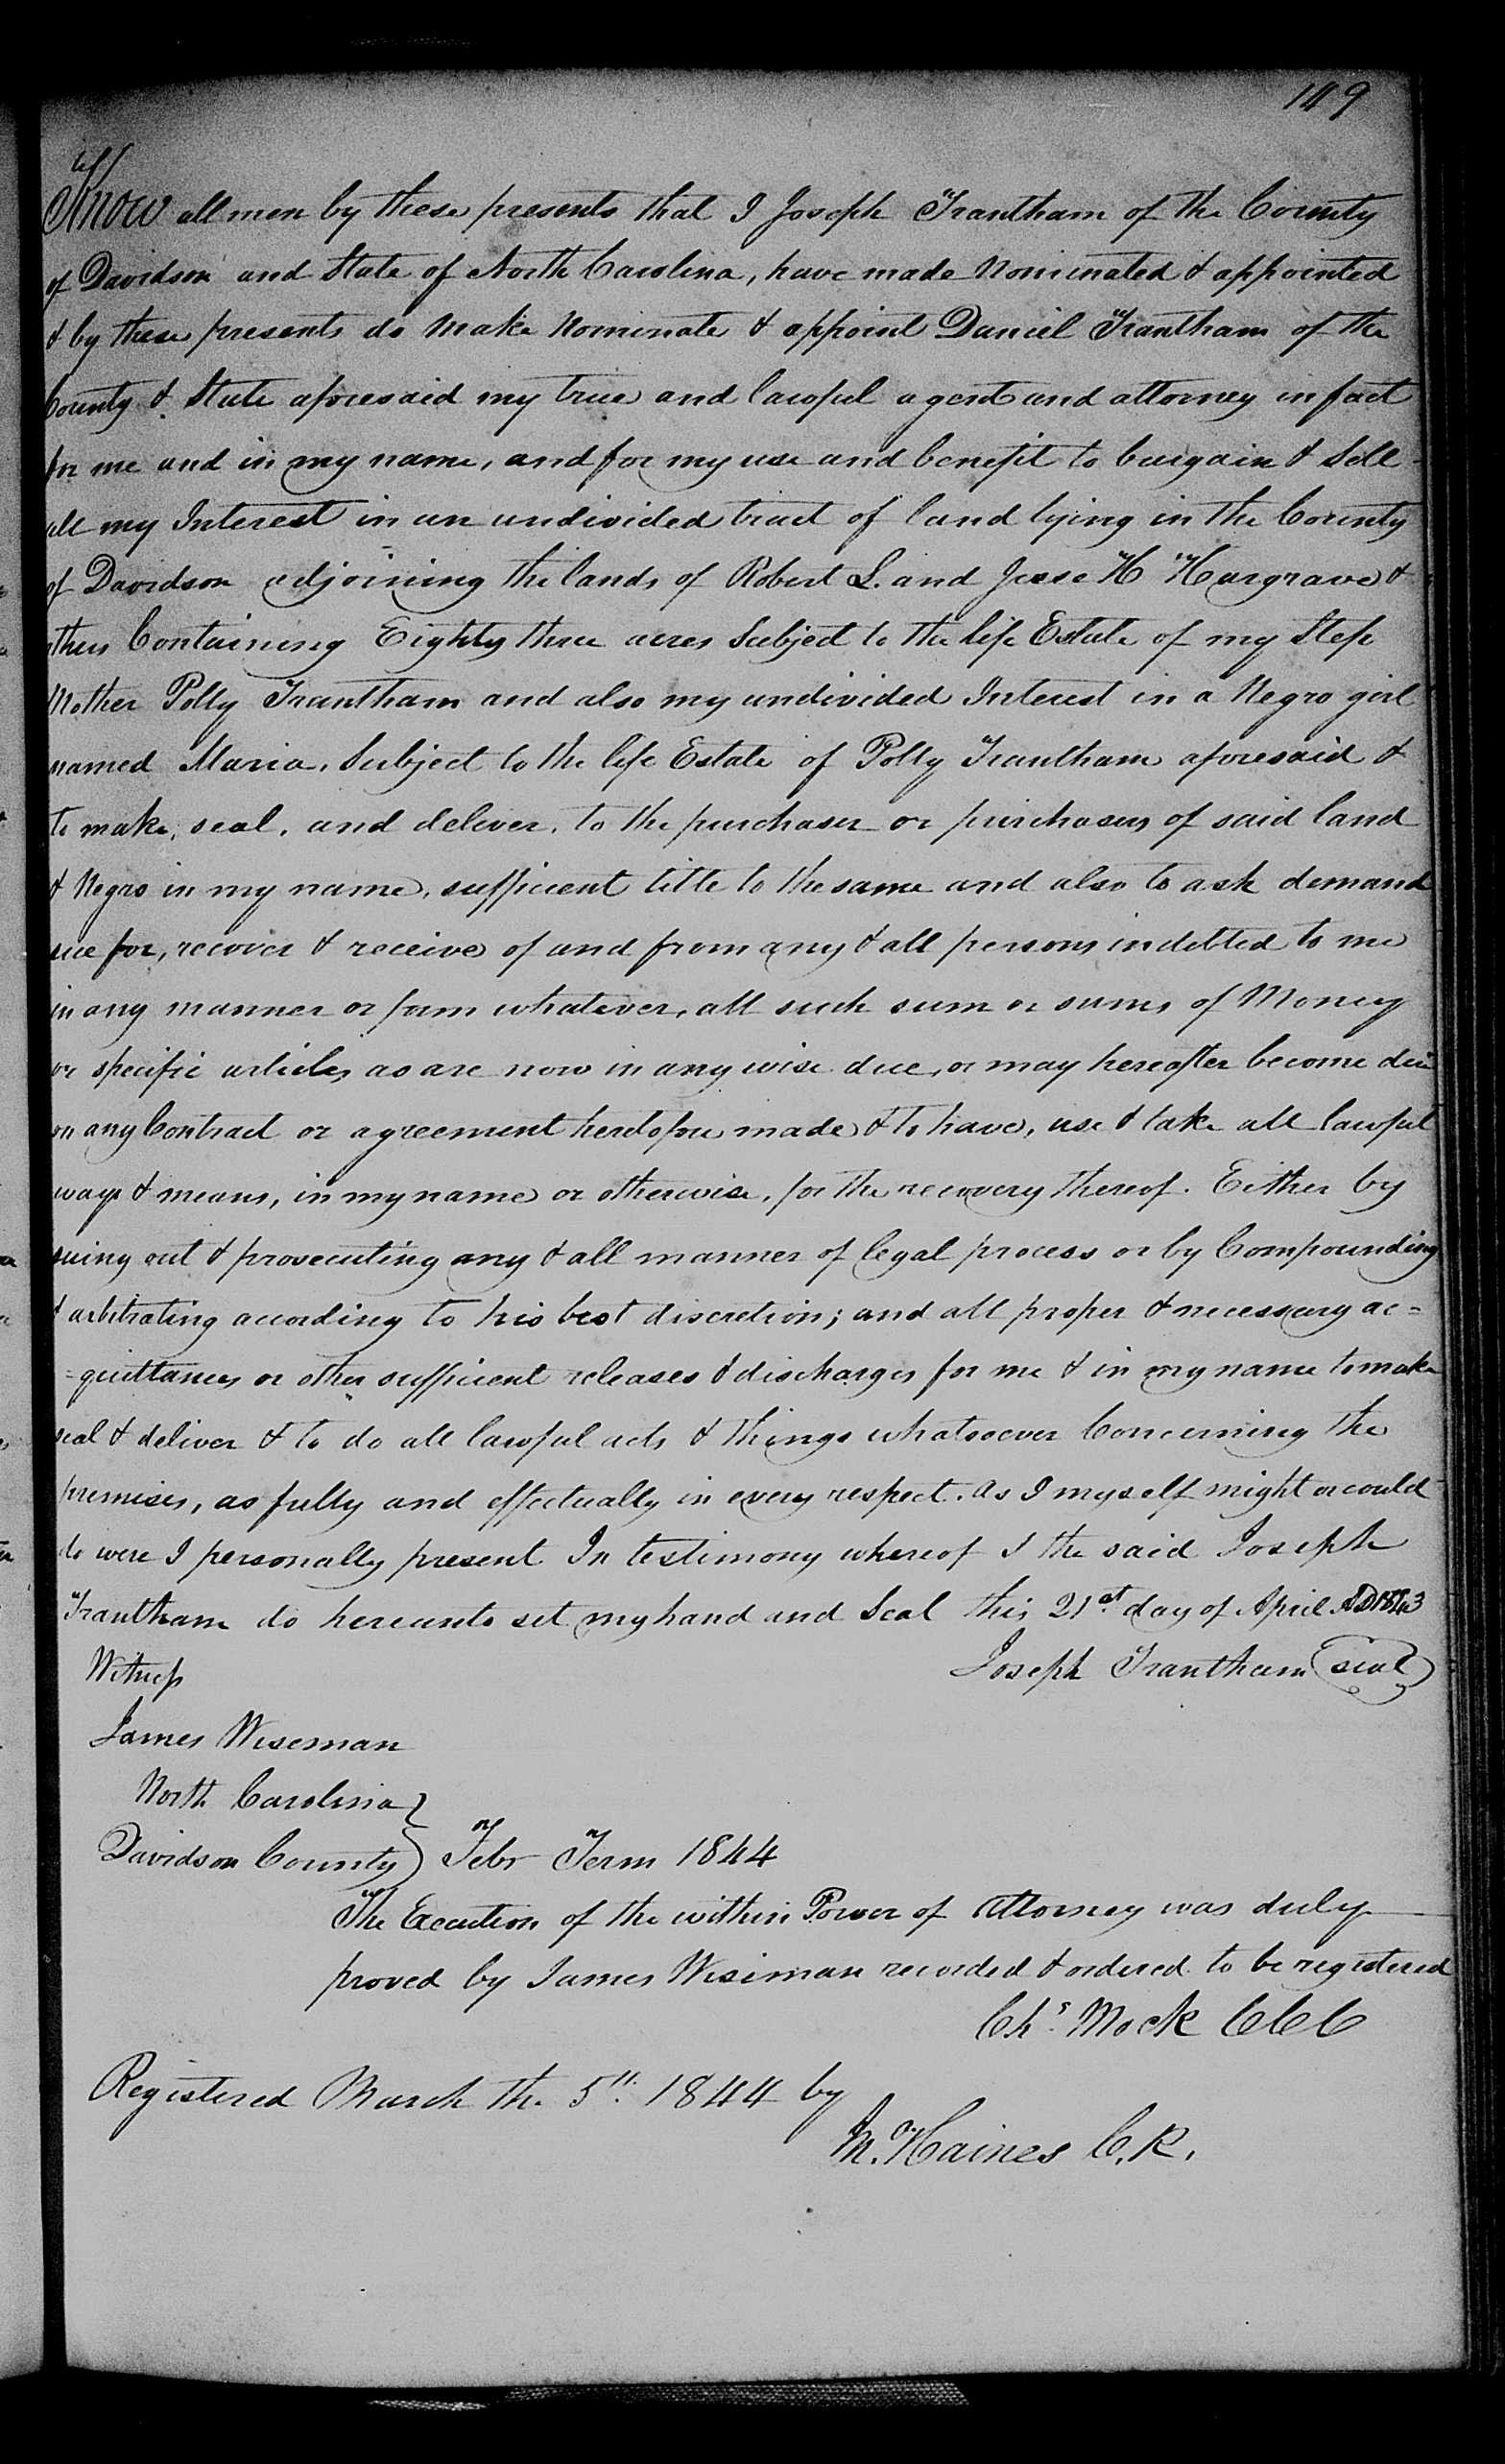 149
Know all men by these presents that I Joseph Trantham of the County
of Davidson and State of North Carolina, have made Nominated & appointed
& by these presents do Make Nominate & appoint Daniel Trantham of the
County & State aforesaid my true and lawful agent and attorney in fact
for me and in my name, and for my use and benefit to bargain & Sell
all my Interest in an undivided tract of land lying in the County
of Davidson adjoining the lands of Robert L. and Jesse H Hargrave &
others Containing Eighty three acres Subject to the life Estate of my Step
Mother Polly Trantham and also my undivided Interest in a Negro girl
named Maria, Subject to the life Estate of Polly Trantham aforesaid &
to make, seal, and deliver, to the purchaser or purchasers of said land
& Negro in my name, sufficient title to the same and also to ask demand
sue for, recover & receive of and from any & all persons indebted to me
in any manner or form whatever, all such sum or sums of Money
or specific articles as are now in any wise due, or may hereafter become due
on any Contract or agreement heretofore made & to have, use & take all lawful
ways & means, in my name or otherwise, for the recovery thereof. Either by
suing out & prosecuting any & all manner of legal process or by Compounding
& arbitrating according to his best discretion; and all proper & necessary ac=
=quittances or other sufficient releases & discharges for me & in my name to make
seal & deliver & to do all lawful acts & things whatsoever Concerning the
premises, as fully and effectually in every respect. as I myself might or could
do were I personally present In testimony whereof I the said Joseph
Trantham do hereunto set my hand and Seal this 21st day of April AD 1843
Witness Joseph Trantham (seal)
James Wiseman
North Carolina }
Davidson County } Febr Term 1844
The Execution of the within Power of Attorney was duly
proved by James Wiseman recorded & ordered to be registered
Chs. Mock CCC
Registered March the 5th 1844 by
M. Haines C.R.